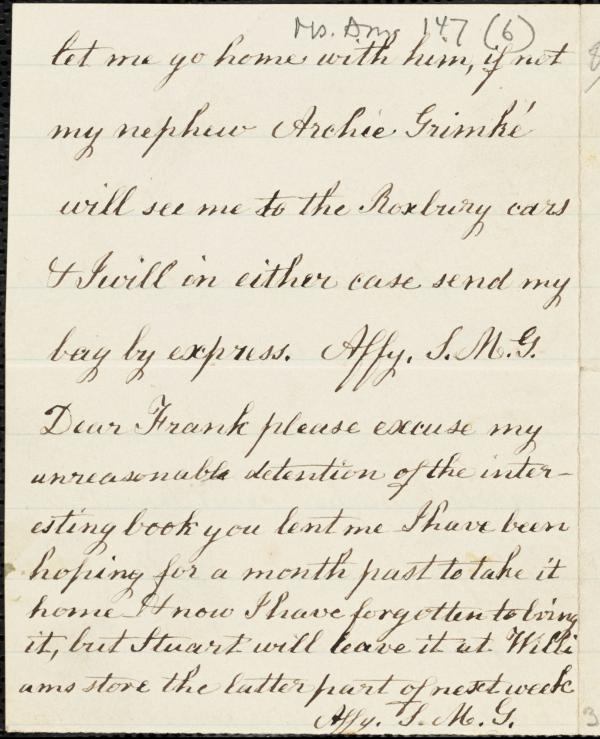 Ms. Am. 147 (6)
let me go home with him, if not
my nephew Archie Grimké
will see me to the Roxbury cars
& I will in either case send my
bag by express. Affy. S. M. G.
Dear Frank please excuse my
unreasonable detention of the inter-
esting book you lent me I have been
hoping for a month past to take it
home & now I have forgotten to bring
it, but Stuart will leave it at Willi
ams store the latter part of next week
Affy. S. M. G.
3